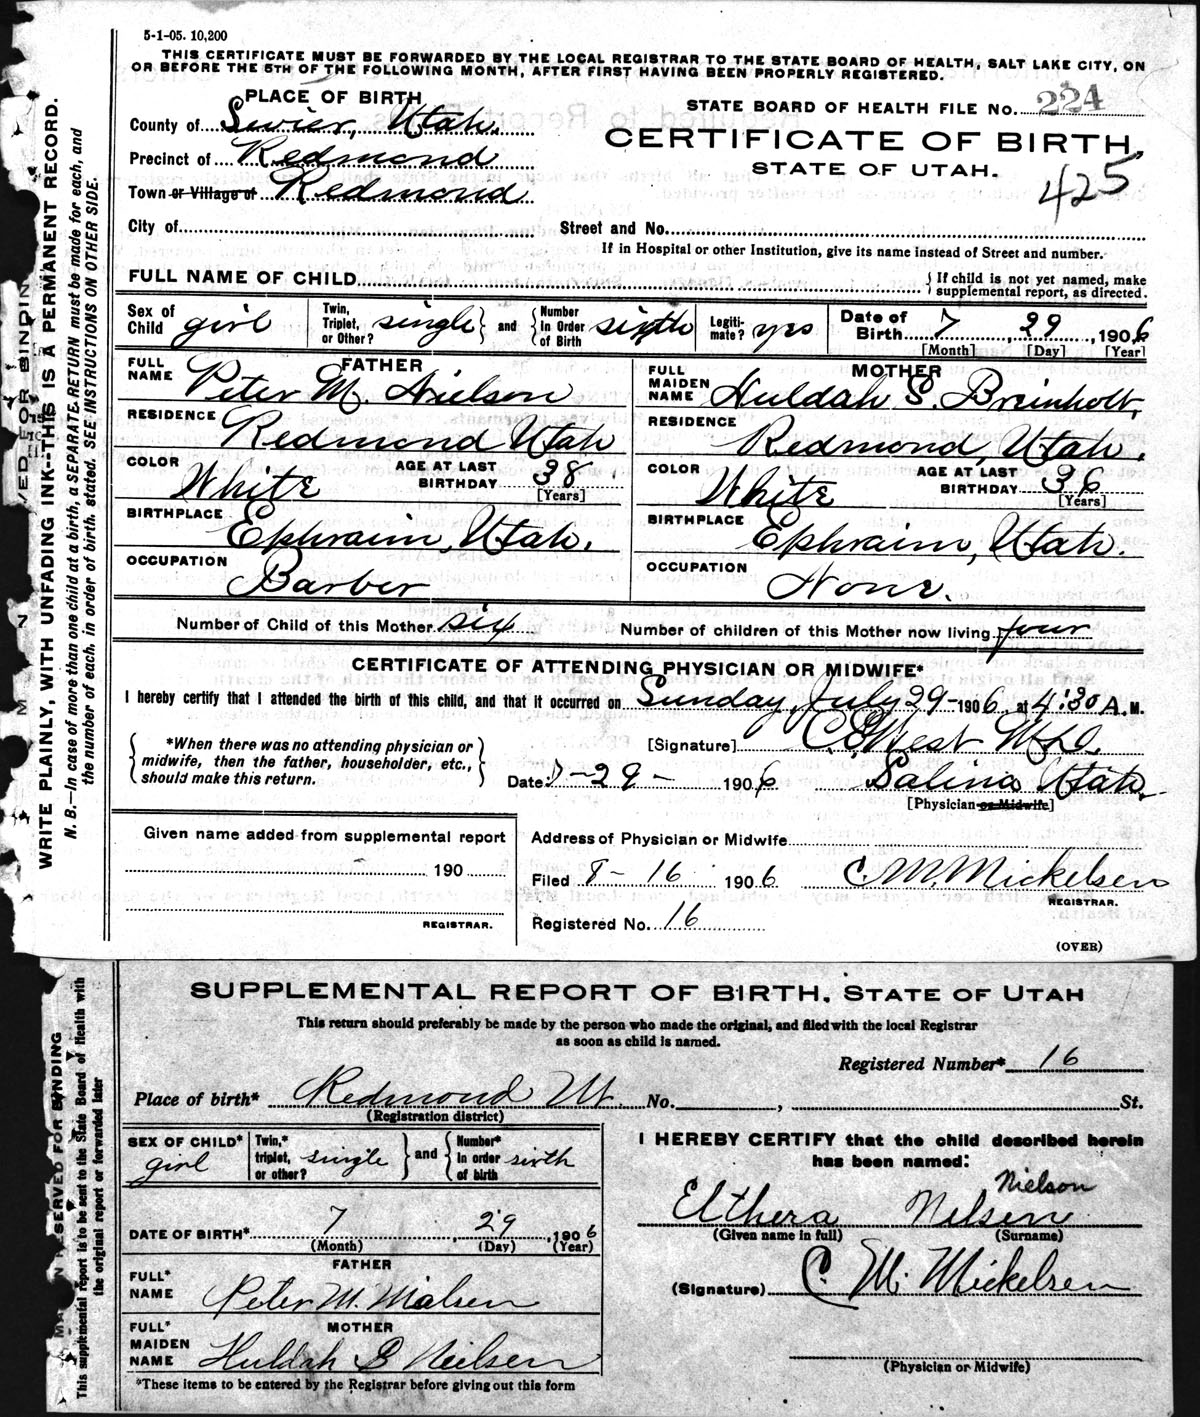 5-1-05. 10,200
THIS CERTIFICATE MUST BE FORWARDED BY THE LOCAL REGISTRAR TO THE STATE BOARD OF HEALTH, SALT LAKE CITY, ON
OR BEFORE THE 5TH OF THE FOLLOWING MONTH, AFTER FIRST HAVING BEEN PROPERLY REGISTERED.
PLACE OF BIRTH
STATE BOARD OF HEALTH FILE NO. 224
County of Sevier, Utah.
CERTIFICATE OF BIRTH,
Precinct of Redmond
STATE OF UTAH.
425
Town or Village of Redmond
City of
Street and No.
If in Hospital or other Institution, give its name instead of Street and number.
FULL NAME OF CHILD
{ If child is not yet named, make supplemental report, as directed.
Sex of Child girl
Twin, Triplet, or Other? single } and { Number In Order of Birth sixth
Legitimate? yes
Date of Birth 7 29, 1906
[Month] [Day] [Year]
FATHER
FULL NAME Peter M. Nielson
RESIDENCE Redmond Utah
COLOR White
AGE AT LAST BIRTHDAY 38
[Years]
BIRTHPLACE Ephraim, Utah.
OCCUPATION Barber
MOTHER
FULL MAIDEN NAME Huldah S. Breinholt,
RESIDENCE Redmond, Utah.
COLOR White
AGE AT LAST BIRTHDAY 36
[Years]
BIRTHPLACE Ephraim, Utah.
OCCUPATION None.
Number of Child of this Mother six
Number of children of this Mother now living four
CERTIFICATE OF ATTENDING PHYSICIAN OR MIDWIFE*
I hereby certify that I attended the birth of this child, and that it occurred on Sunday, July 29- 1906, at 4:30 A.M.
{ *When there was no attending physician or
midwife, then the father, householder, etc.,
should make this return. }
[Signature] C. E. West M.D.
Date: 7-29- 1906
Salina Utah.
[Physician or Midwife]
Given name added from supplemental report
190
REGISTRAR.
Address of Physician or Midwife
Filed 8-16 1906 C. M. Mickelsen
REGISTRAR.
Registered No. 16
(OVER)
WRITE PLAINLY, WITH UNFADING INK--THIS IS A PERMANENT RECORD.
N. B.—In case of more than one child at a birth, a SEPARATE RETURN must be made for each, and
the number of each, in order of birth, stated. SEE INSTRUCTIONS ON OTHER SIDE.
SUPPLEMENTAL REPORT OF BIRTH. STATE OF UTAH
This return should preferably be made by the person who made the original, and filed with the local Registrar
as soon as child is named.
Registered Number* 16
Place of birth* Redmond Ut. No. , St.
(Registration district)
SEX OF CHILD* girl
Twin,* triplet, or other? single } and { Number* In order of birth sixth
DATE OF BIRTH* 7 29, 1906
(Month) (Day) (Year)
FATHER
FULL* NAME Peter M. Nielsen
MOTHER
FULL* MAIDEN NAME Huldah B Nielsen
*These items to be entered by the Registrar before giving out this form
I HEREBY CERTIFY that the child described herein
has been named:
Nielson
Elthera Nelsen
(Given name in full) (Surname)
(Signature) C. M. Mickelsen
(Physician or Midwife)
This supplemental report is to be sent to the State Board of Health with
the original report or forwarded later